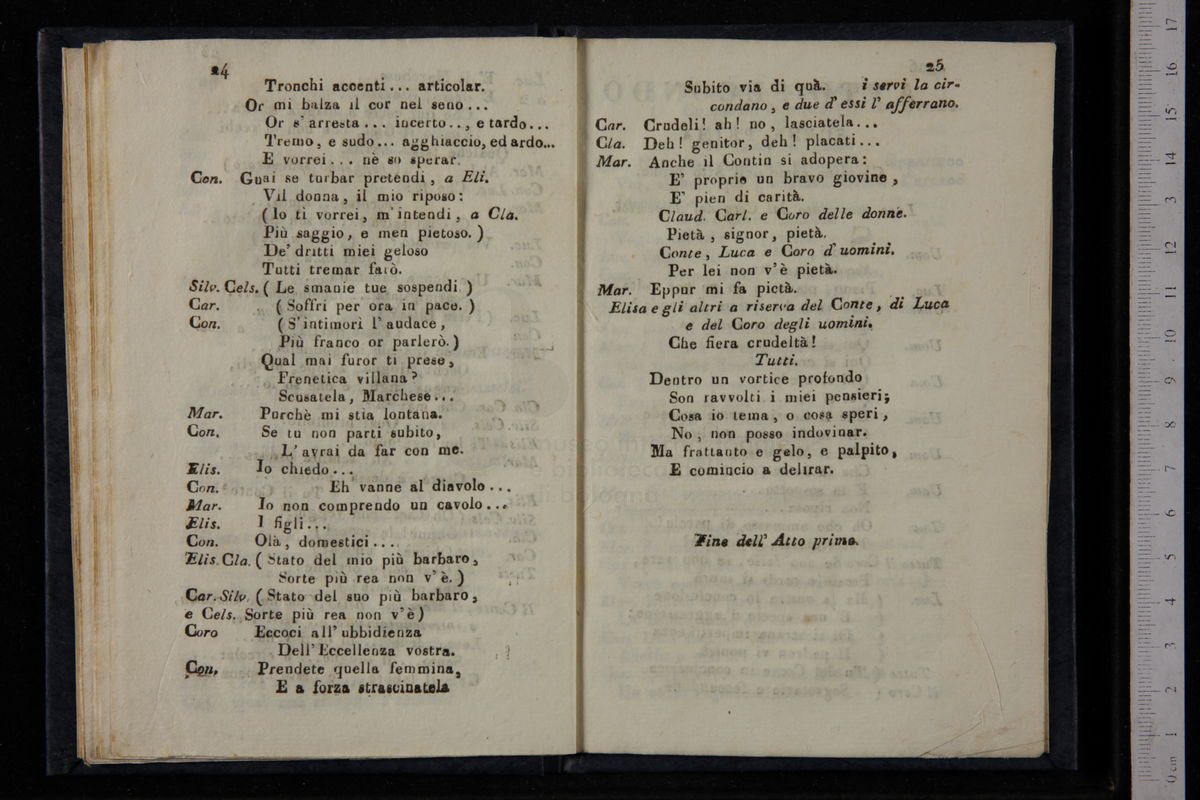 24
Tronchi accenti... articolar.
Or mi balza il cor nel seno...
Or s'arresta... incerto.., e tardo...
Tremo, e sudo... agghiaccio, ed ardo...
E vorrei... nè so sperar.
Con. Guai se turbar pretendi, a Eli.
Vil donna, il mio riposo:
(Io ti vorrei, m'intendi, a Cla.
Più saggio, e men pietoso.)
De' dritti miei geloso
Tutti tremar farò.
Silv. Cels. (Le smanie tue sospendi )
Car. (Soffri per ora in pace.)
Con. (S'intimori l'audace,
Più franco or parlerò.)
Qual mai furor ti prese,
Frenetica villana?
Scusatela, Marchese...
Mar. Purchè mi stia lontana.
Con. Se tu non parti subito,
L'avrai da far con me.
Elis. Io chiedo...
Con. Eh vanne al diavolo...
Mar. Io non comprendo un cavolo...
Elis. I figli...
Con. Olà, domestici...
Elis. Cla. (Stato del mio più barbaro,
Sorte più rea non v'è.)
Car. Silv. (Stato del suo più barbaro,
e Cels. Sorte più rea non v'è)
Coro Eccoci all'ubbidienza
Dell'Eccellenza vostra.
Con. Prendete quella femmina,
E a forza strascinatela
25
Subito via di quà. i servi la cir-
condano, e due d'essi l'afferrano.
Car. Crudeli! ah! no, lasciatela...
Cla. Deh! genitor, deh! placati...
Mar. Anche il Contin si adopera:
E' proprio un bravo giovine,
E' pien di carità.
Claud. Carl. e Coro delle donne.
Pietà, signor, pietà.
Conte, Luca e Coro d'uomini.
Per lei non v'è pietà.
Mar. Eppur mi fa pietà.
Elisa e gli altri a riserva del Conte, di Luca
e del Coro degli uomini.
Che fiera crudeltà!
Tutti.
Dentro un vortice profondo
Son ravvolti i miei pensieri;
Cosa io tema, o cosa speri,
No, non posso indovinar.
Ma frattanto e gelo, e palpito,
E comincio a delirar.
Fine dell'Atto primo.